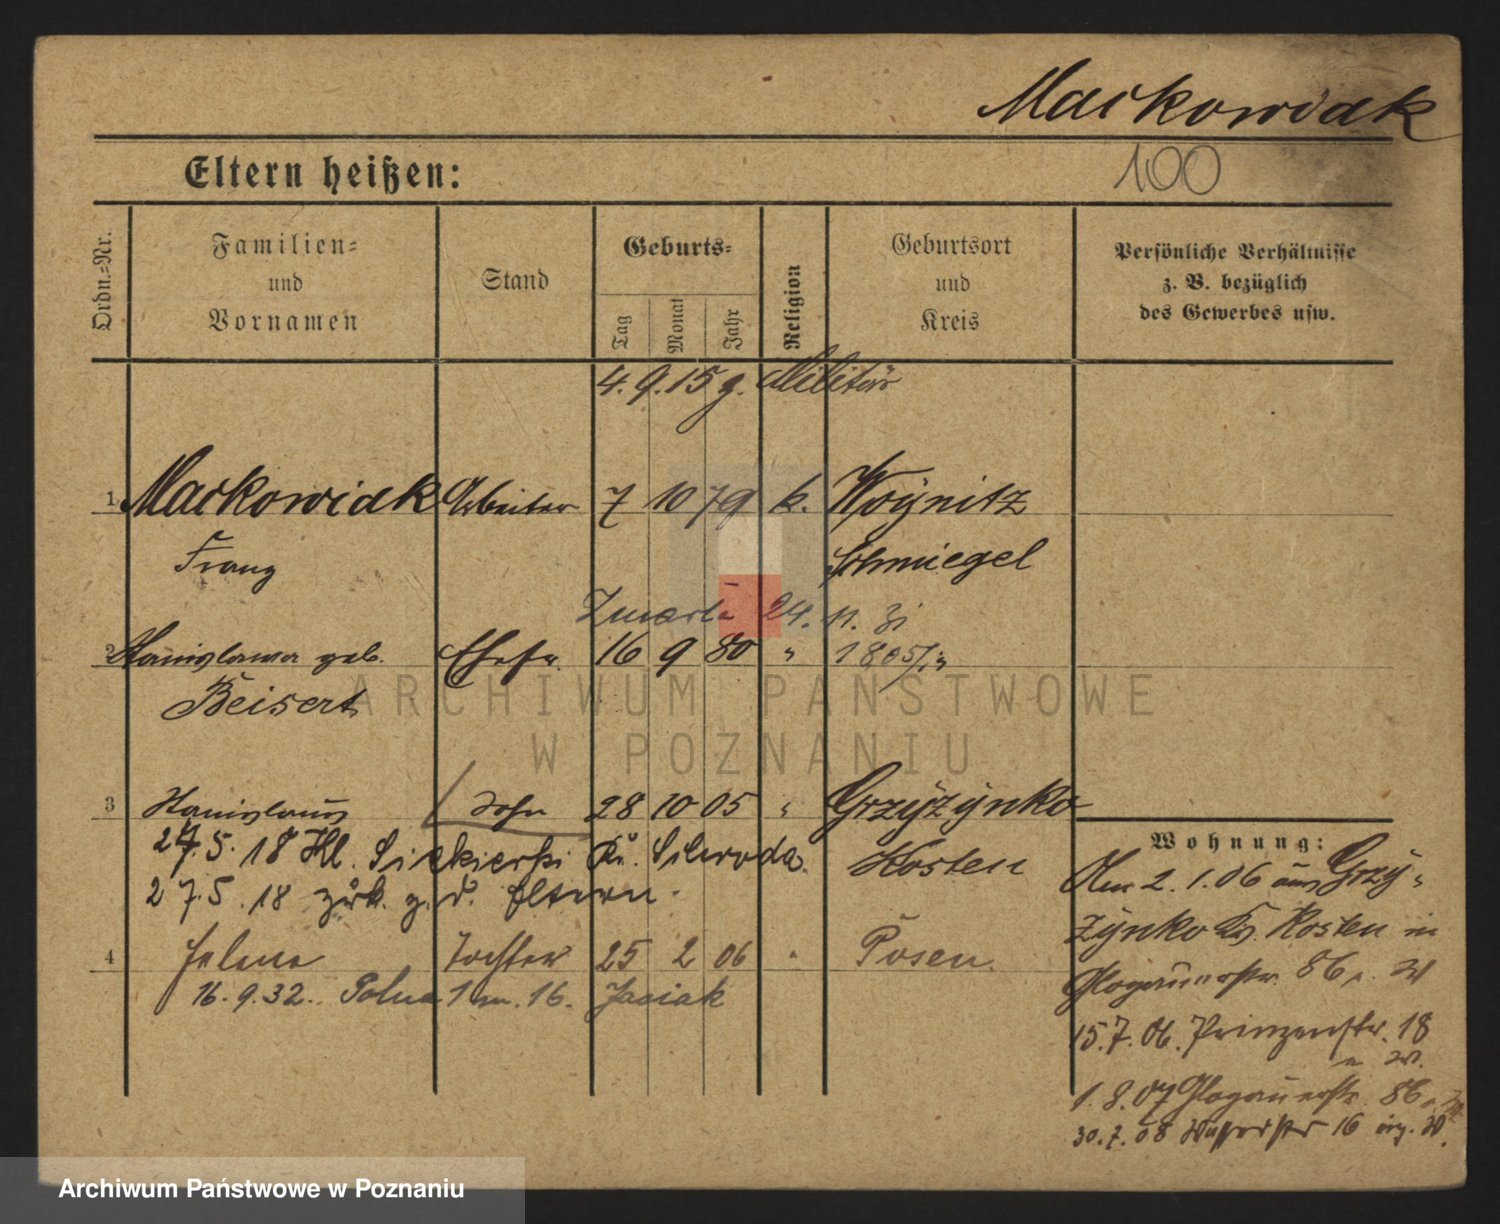 Markowiak
100
Eltern heißen:
Ordn.-Nr.
Familien-
und
Vornamen
Stand
Geburts-
Tag
Monat
Jahr
Religion
Geburtsort
und
Kreis
Persönliche Verhältnisse
z. B. bezüglich
des Gewerbes usw.
4. 9. 15 z. Militär
1 Markowiak Arbeiter 7 10 79 k. Woynitz
Franz Schmiegel
Zmarła 24. 11. 31
2 Stanislawa geb. Ehefr. 16 9 80 " 1805/
Beisert
3 Stanislaus Sohn 28 10 05 " Grzyzynko
Kosten
27. 5. 18 Kl. Siekierki Kr. Schroda.
27. 5. 18 zur. z. d. Eltern.
4 Helene Tochter 25 2 06 " Posen.
16. 9. 32. Polna 1 m. 16. Jasiak
Wohnung:
Am 2. 1. 06 aus Grzy-
zynko Kr. Kosten in
Glogauerstr. 86
15. 7. 06. Prinzenstr. 18
1. 8. 07 Glogauerstr. 86
30. 7. 08 16
ARCHIWUM PAŃSTWOWE
W POZNANIU
Archiwum Państwowe w Poznaniu